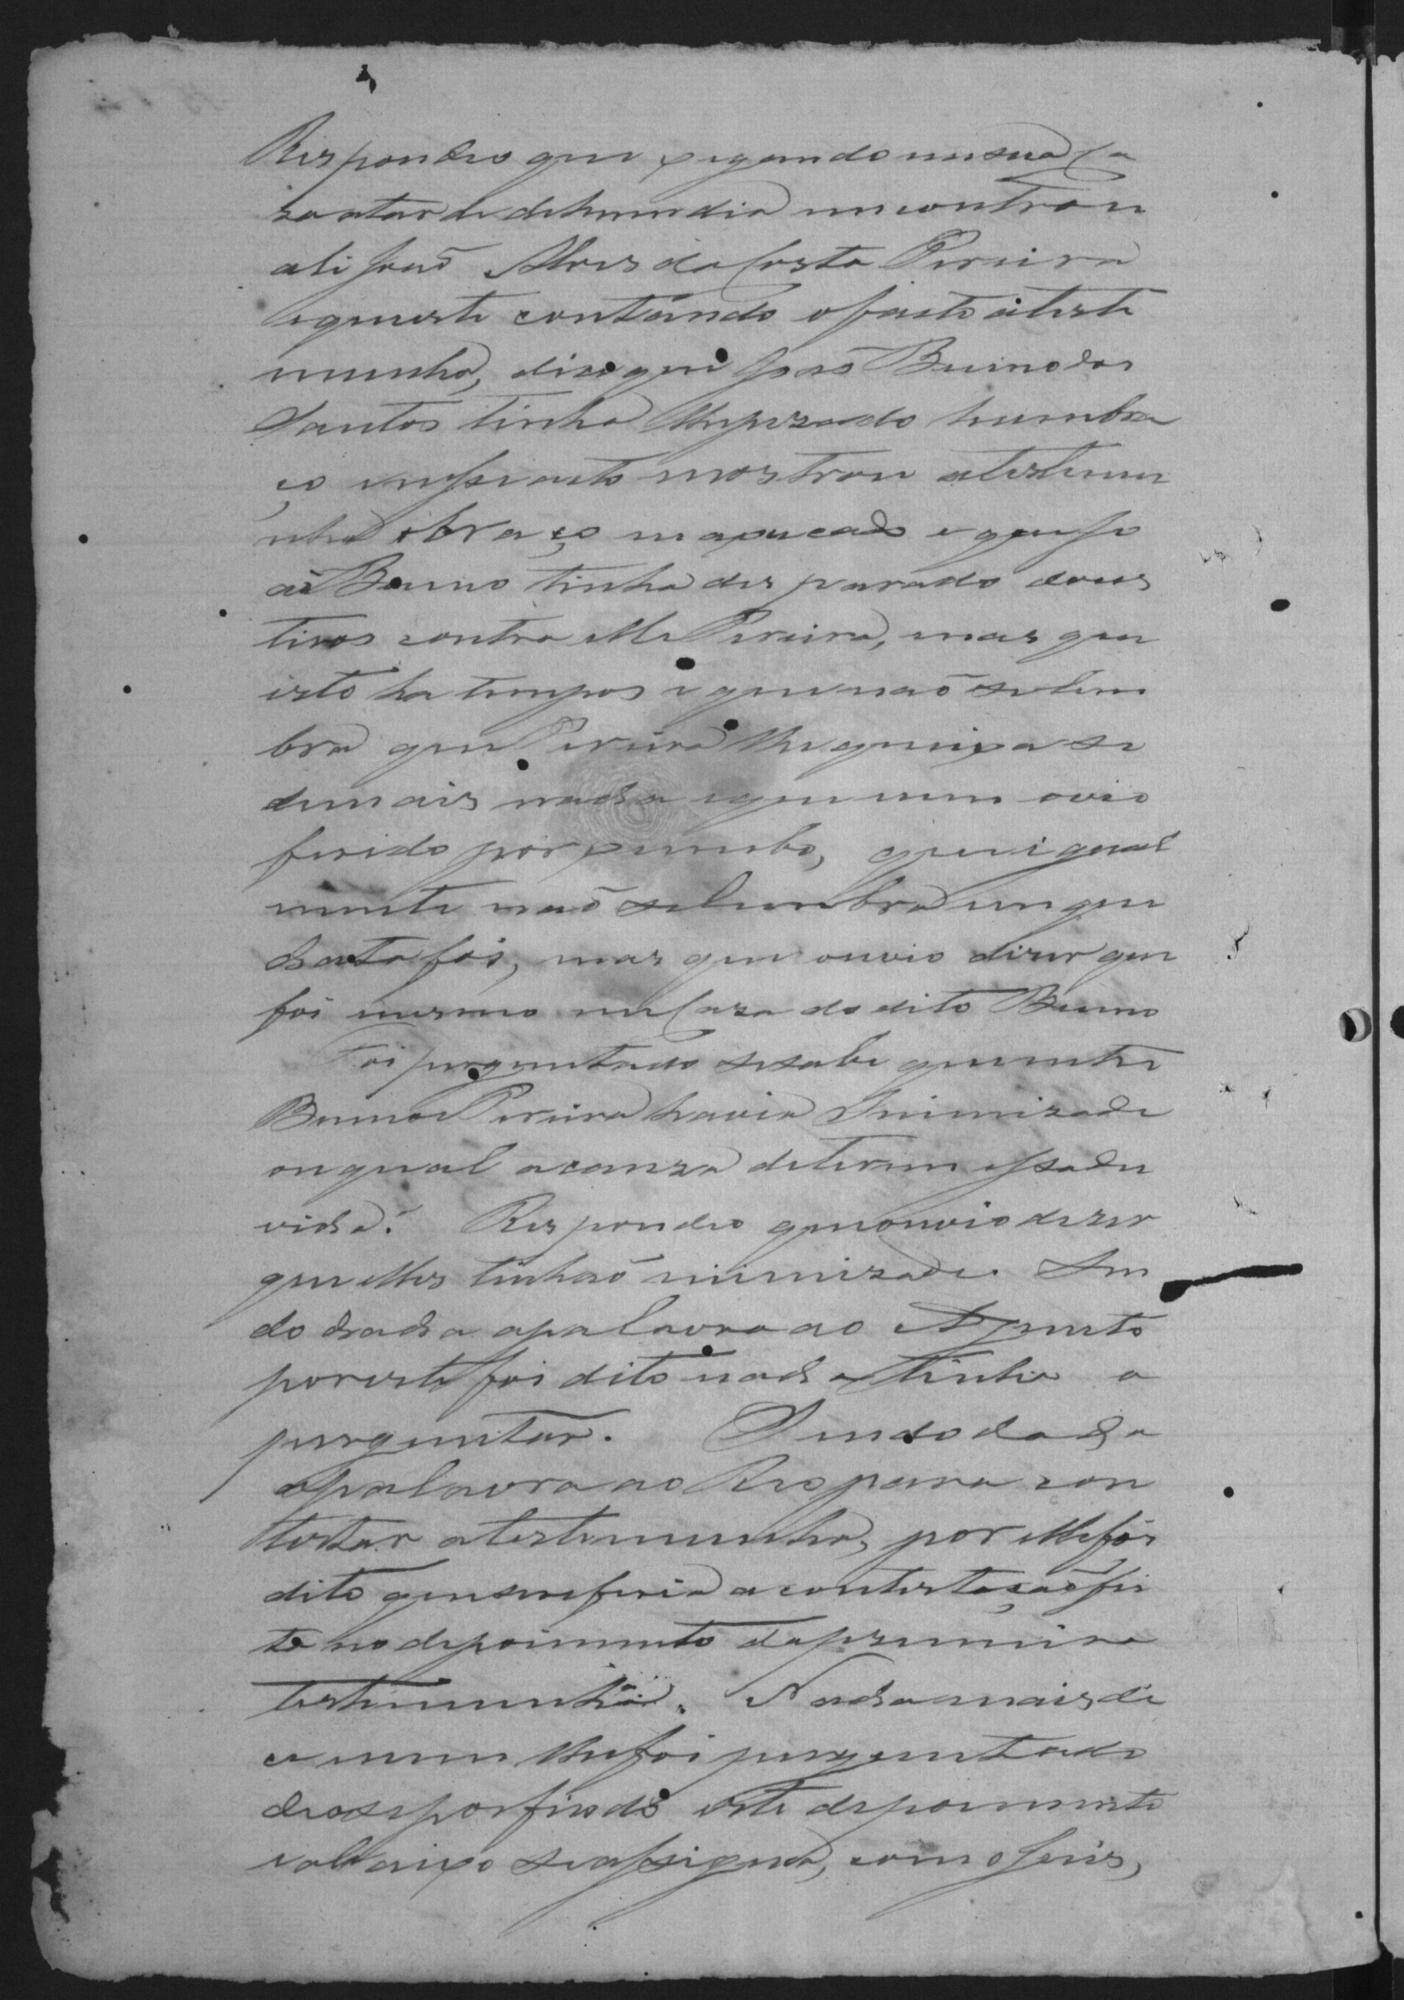 Respondeo que xegando in sua Ca
za a tarde de hum dia in controu
ali João Alves da Costa Pereira
e que este contando o facto a teste
munha, dise que João Bueno dos
Santos tinha lhe pizado hum bra
ço enfianto mostrou a testemu
nha o braço maxucado e que Jo
ão Bueno tinha des parado dous
tiros contra elle Pereira, mas que
isto ha tempos e que não se lem
bra que Pereira lhe queixa se
de mais nada e que nem ovio
ferido por xumbo, que igual
mente não se lembra em que
data foi, mas que ouvio dizer que
foi mesmo in Caza do dito Bueno
Foi perguntado se sabe que entre
Bueno e Pereira havia Inimizade
ou qual a cauza de terem essa du
vida? Respondeo que ouvio dizer
que elles tinhaõ inimizade. Sen
do dada a palavra ao Agusto
por este foi dito nada tinha a
perguntar. Sendo dada
a palavra ao Reo para con
testar a testemunha, por elle foi
dito que se referia a contestação fei
ta no depoimento da premeira
testemunha. Nada mais di
ce nem lhe foi perguntado
deo se por findo este depoimento
e abaixo se assigna, com o Juis,